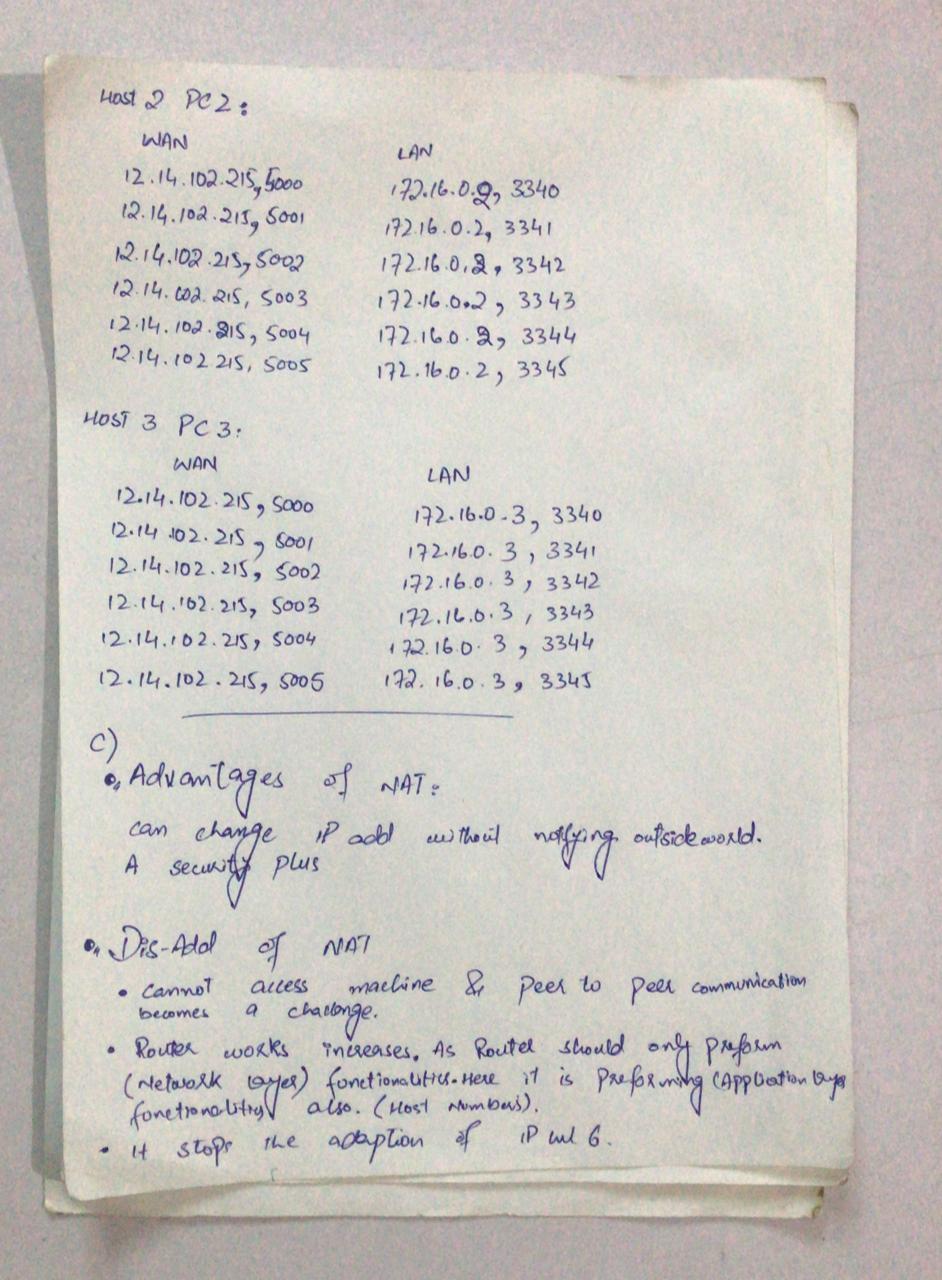 Host 2 PC2:
WAN LAN
12.14.102.215, 5000 172.16.0.2, 3340
12.14.102.215, 5001 172.16.0.2, 3341
12.14.102.215, 5002 172.16.0.2, 3342
12.14.102.215, 5003 172.16.0.2, 3343
12.14.102.215, 5004 172.16.0.2, 3344
12.14.102 215, 5005 172.16.0.2, 3345
HOST 3 PC3:
WAN LAN
12.14.102.215, 5000 172.16.0.3, 3340
12.14.102.215, 5001 172.16.0.3, 3341
12.14.102.215, 5002 172.16.0.3, 3342
12.14.102.215, 5003 172.16.0.3, 3343
12.14.102.215, 5004 172.16.0.3, 3344
12.14.102.215, 5005 172.16.0.3, 3345
C)
Advantages of NAT:
can change IP add without notifying outside world.
A security plus
Dis-Add of NAT
• Cannot access machine & Peer to Peer communication
becomes a challenge.
• Router works increases. As Router should only preform
(Network layer) functionalities. Here it is preforming (Application layer
fonctionalities) also. (Host Numbers).
• It stops the adaption of IP 6.